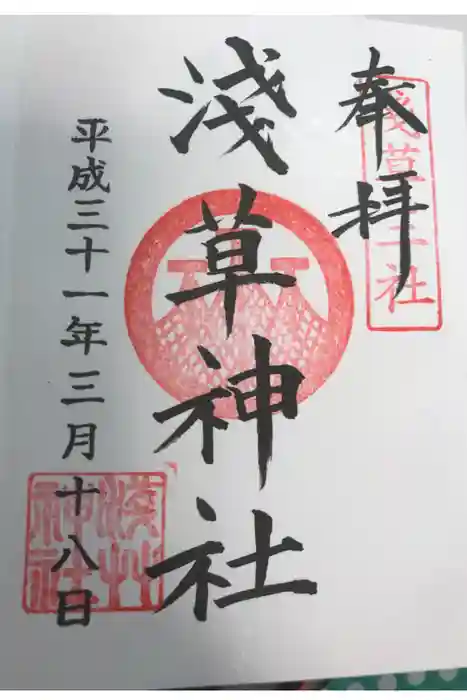 奉拝
淺草三社
淺草神社
平成三十一年三月十八日
淺草神社